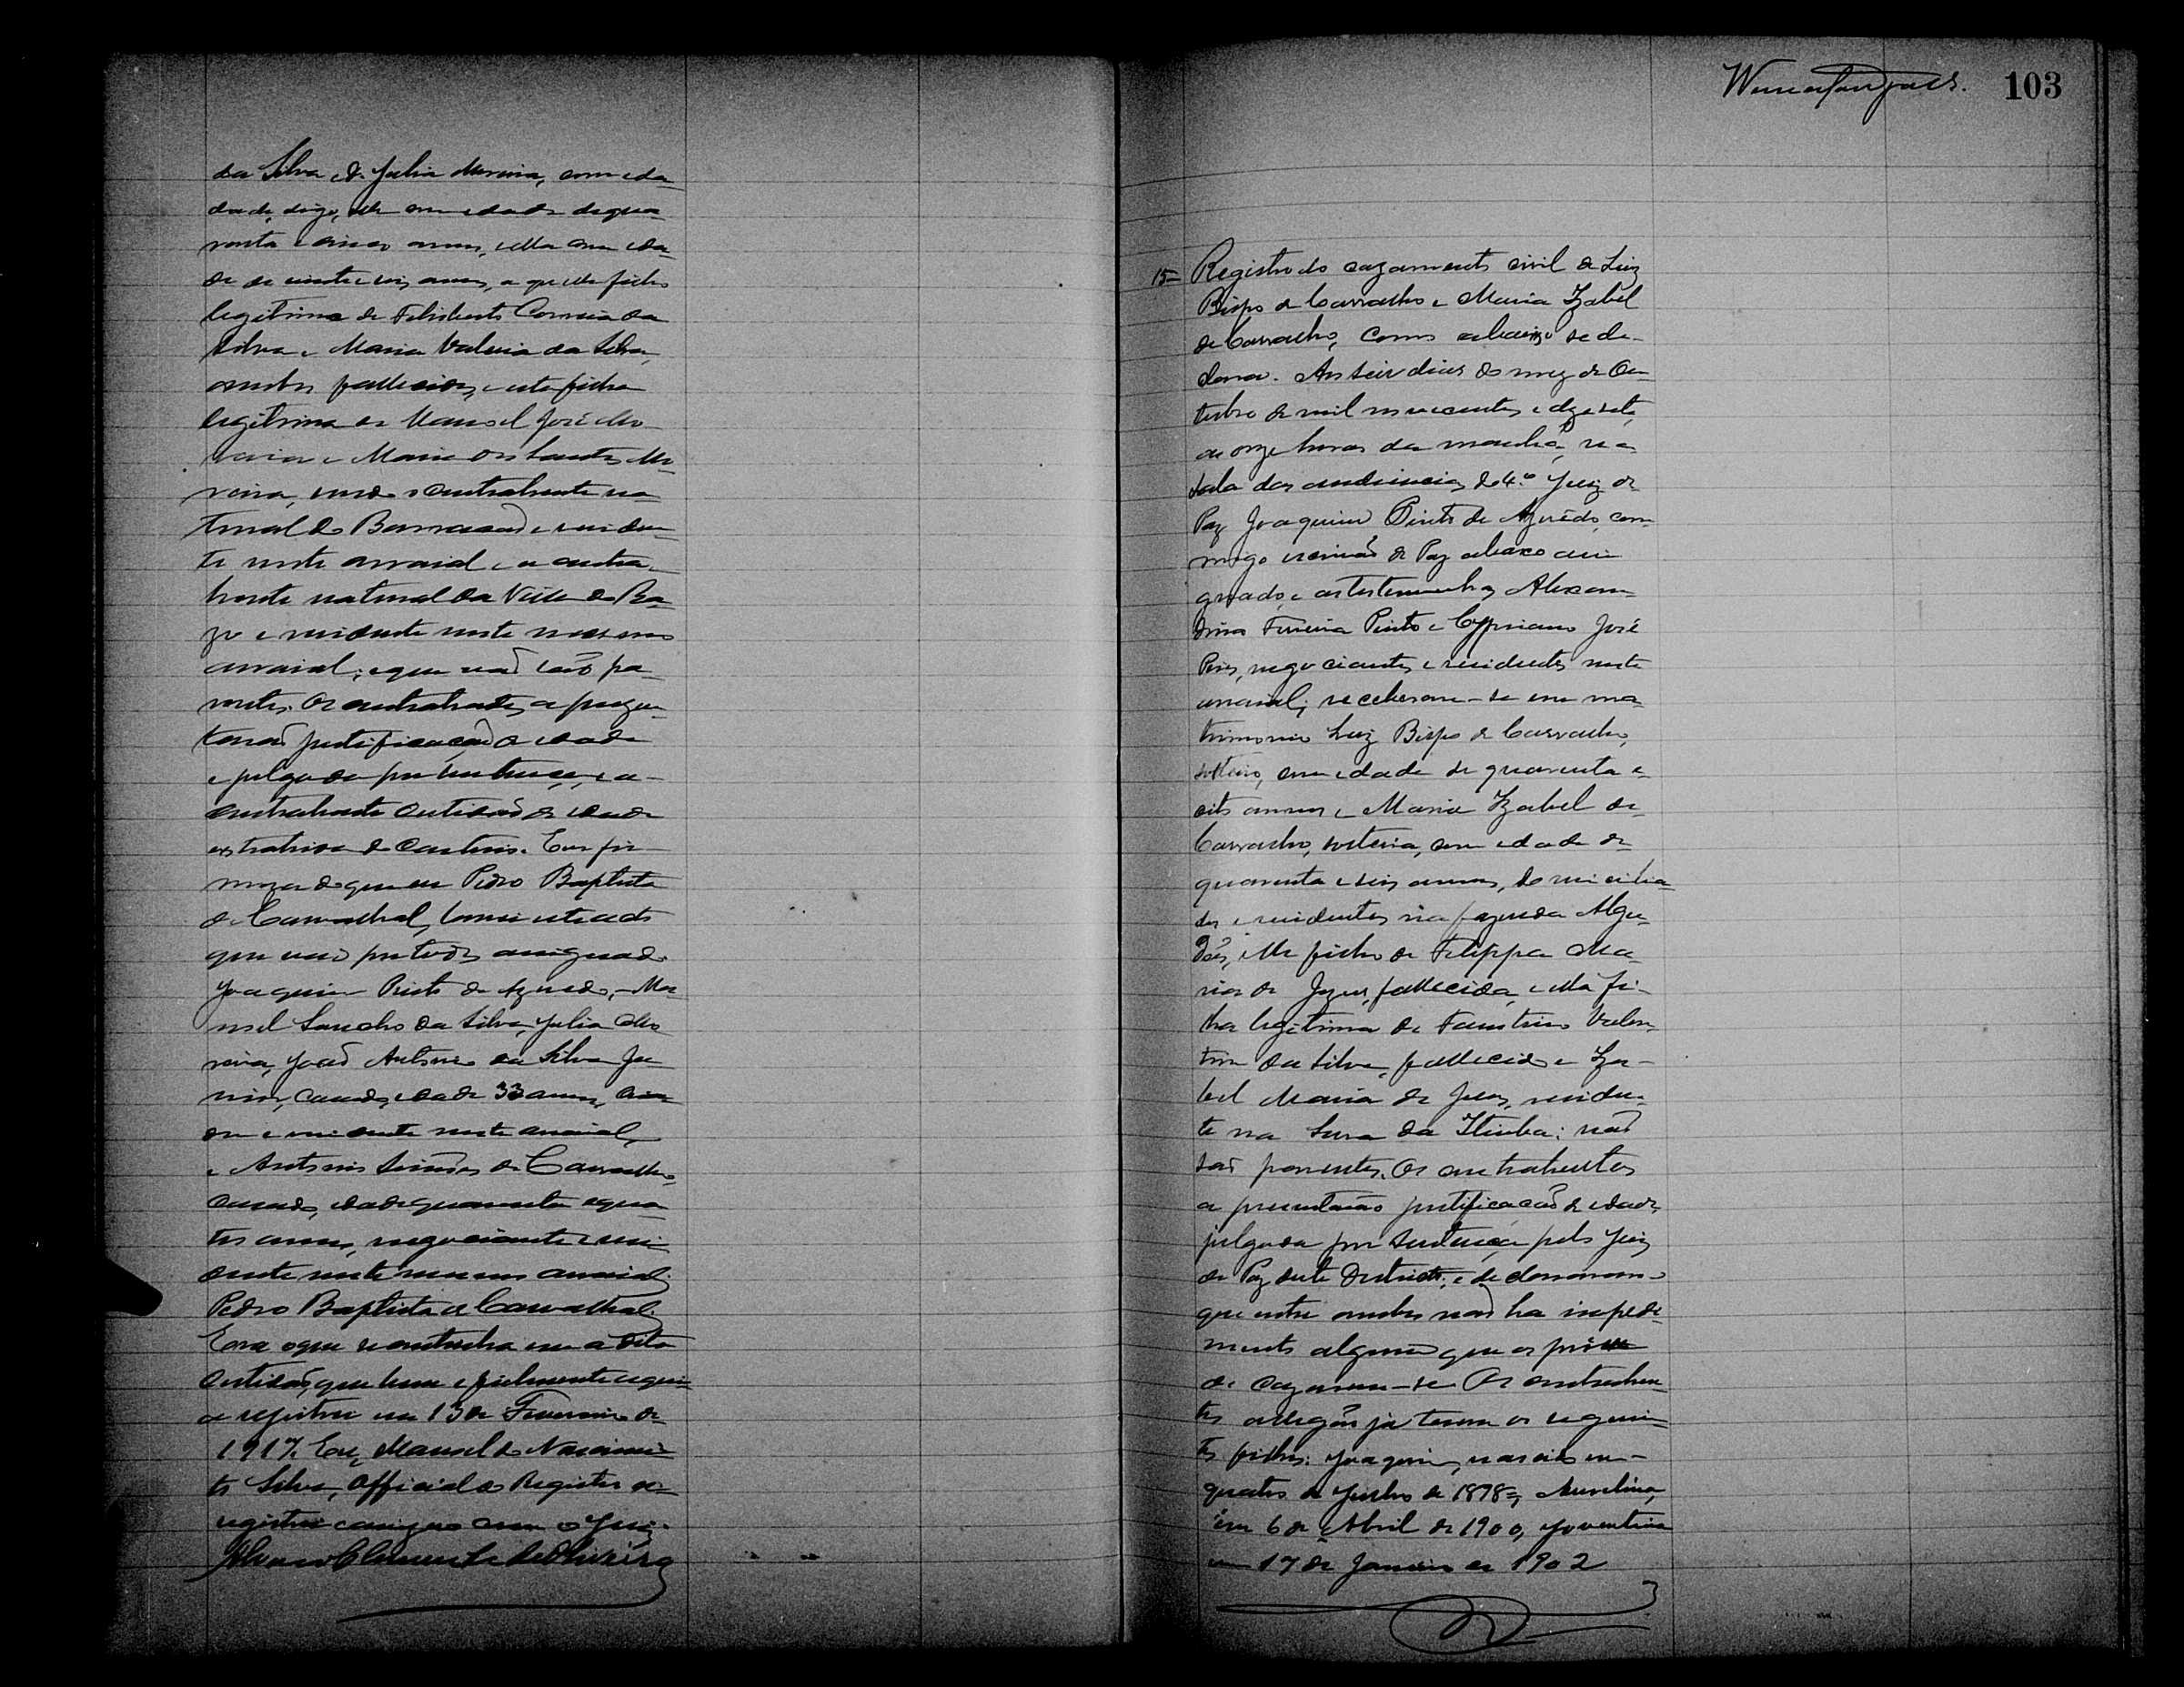 da Silva e D. Julia Moreira, com ida
dade, digo, elle com edade de qua
renta e cinco annos, ella com eda
de de vinte e seis annos, a que elle filho
legitimo de Felisberto Correia da
Silva e Maria Valeria da Silva,
ambos fallecidos, e esta filha
legitima de Manoel José Mo
reira e Maria dos Santos Mo
reira, sendo o contrahente na
tural do Barracão e residen
te neste arraial e a contra
hente natural da Villa do
e residente neste mesmo
arraial; e que não são pa
rentes. Os contrahentes aprezen
tarão justificação de edade
e julgada por sentença, e a
contrahente certidão de edade
extrahida do Cartorio. Em fir
meza do que eu Pedro Baptista
de Carvalhal, lavrei este acto
que vae por todos assignado.
Joaquim Pinto de Azevedo, Ma
noel Sancho da Silva, Julia Mo
reira, João Antonio da Silva Ju
nior, casado, edade 33 annos,
e residente neste arraial,
e Antonio Simões de Carvalho,
casado, edade quarenta e qua
tro annos, negociante e resi
dente neste mesmo arraial.
Pedro Baptista de Carvalhal.
Era o que se continha em a dita
certidão, que bem e fielmente aqui
a registrei em 13 de Fevereiro de
1917. Eu, Manoel do Nascimen
to Silva, Official do Registro o
registrei e assigno com o Juiz.
Alvaro Clemente de Oliveira
103
15 Registro do cazamento civil de Luiz
Bispo de Carvalho e Maria Izabel
de Carvalho, como abaixo se de-
clara. Aos seis dias do mez de Ou
tubro de mil novecentos e dezesete,
as onze horas da manhã, na
sala das audiencias do 4º Juiz de
Paz Joaquim Pinto de Azevêdo, com
migo escrivão de Paz abaixo assi
gnado, e as testemunhas Alexan-
drino Ferreira Pinto e Cypriano José
Pires, negociantes e residentes neste
arraial; receberam-se em ma
trimonio Luiz Bispo de Carvalho,
solteiro, com edade de quarenta e
oito annos e Maria Izabel de
Carvalho, solteira, com edade de
quarenta e seis annos, domicilia
dos e residentes na fazenda Algo
dões, elle filho de Felippa Ma
ria de Jezus, fallecida, e ella fi-
lha legitima de Faustino Valen
tim da Silva, fallecido e Iza-
bel Maria de Jezus, residen-
te na Serra da Itiuba: não
são parentes. Os contrahentes
apresentarão justificação de edade,
julgada por Sentença pelo Juiz
de Paz deste Districto; e declararam-
que entre ambos não ha impedi
mento algum que os prive
de cazarem-se. Os contrahen
tes allegão já terem os seguin
tes filhos: Joaquim, nascido em-
quatro de Junho de 1898, Aurelina,
em 6 de Abril de 1900, Joventina
em 17 de Janeiro de 1902